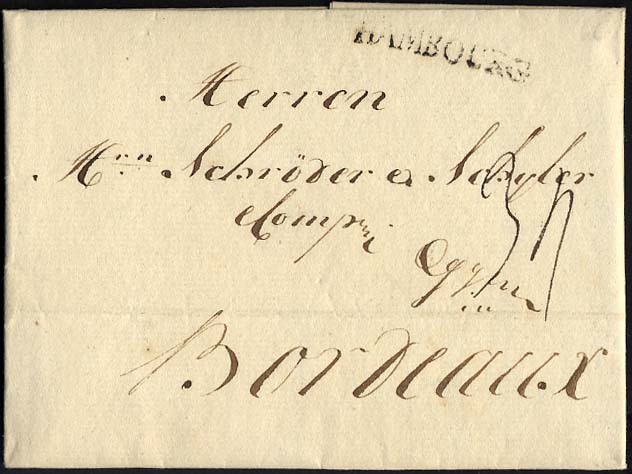 HAMBOURG
Herren
Hrn Schröder & Schyler
Comp
Bordeaux